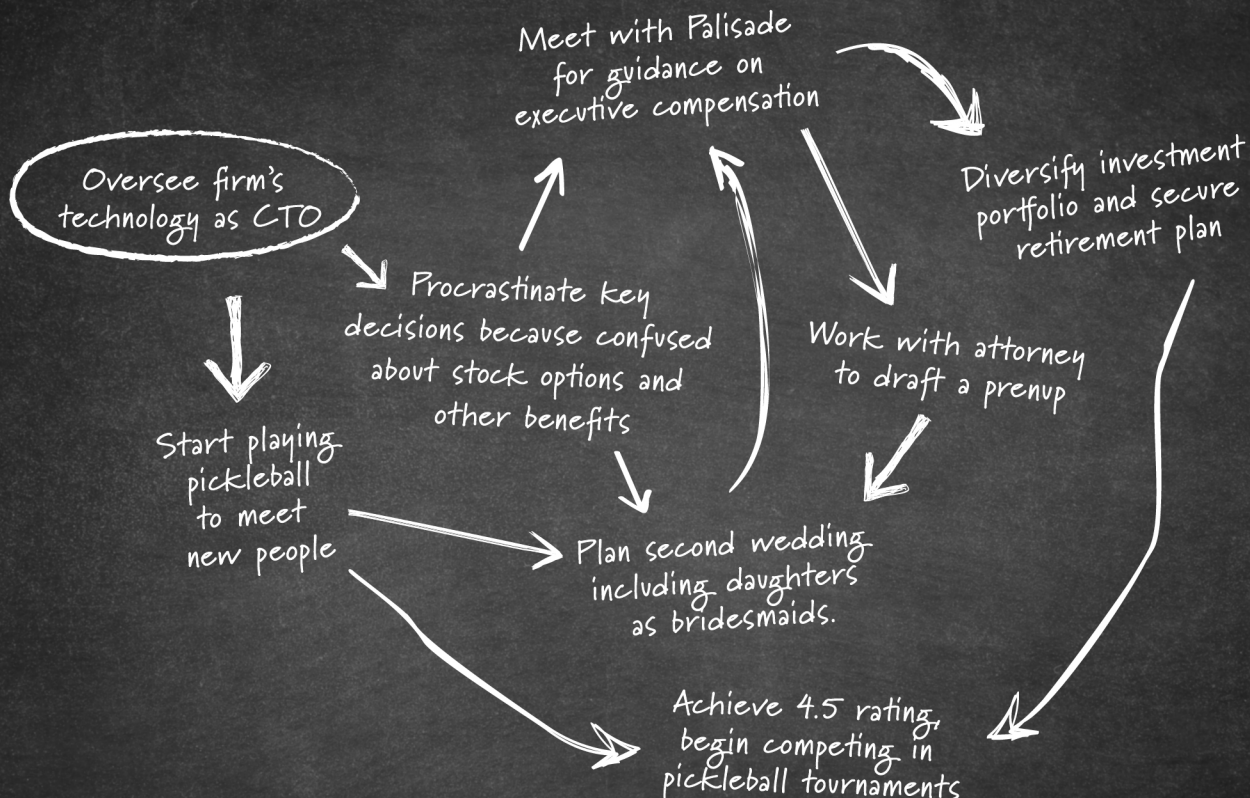 Meet with Palisade
for guidance on
executive compensation
Oversee firm's
technology as CTO
Diversify investment
portfolio and secure
retirement plan
Procrastinate key
decisions because confused
about stock options and
other benefits
Work with attorney
to draft a prenup
Start playing
pickleball
to meet
new people
Plan second wedding
including daughters
as bridesmaids.
Achieve 4.5 rating,
begin competing in
pickleball tournaments